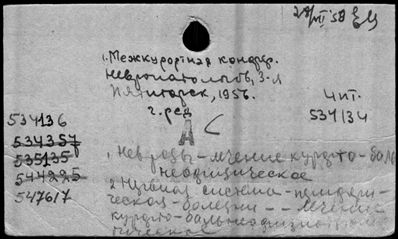 28/VII 58
1. Межкурортная конфер.
невропатологов, 3-я
Пятигорск, 1956.
г. ред
А
Чит.
534134
534136
534357
535135
544225
547617
1. Неврозы - лечение курорто-баль
неофизическое
2. Нервная система - перифери-
ческая - болезни -- лечение
курорто-бальнеофизиотерапев
тическое